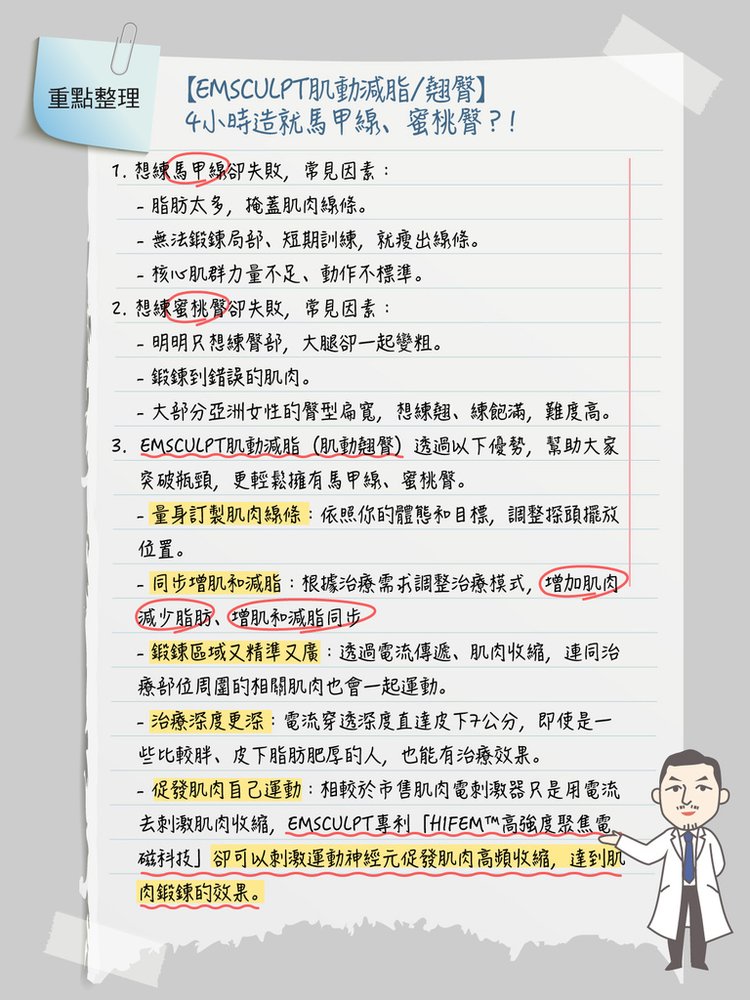 重點整理
【EMSCULPT肌動減脂/翹臀】
4小時造就馬甲線、蜜桃臀？！
1. 想練馬甲線卻失敗，常見因素：
- 脂肪太多，掩蓋肌肉線條。
- 無法鍛鍊局部、短期訓練，就瘦出線條。
- 核心肌群力量不足、動作不標準。
2. 想練蜜桃臀卻失敗，常見因素：
- 明明只想練臀部，大腿卻一起變粗。
- 鍛鍊到錯誤的肌肉。
- 大部分亞洲女性的臀型扁寬，想練翹、練飽滿，難度高。
3. EMSCULPT肌動減脂（肌動翹臀）透過以下優勢，幫助大家
突破瓶頸，更輕鬆擁有馬甲線、蜜桃臀。
- 量身訂製肌肉線條：依照你的體態和目標，調整探頭擺放
位置。
- 同步增肌和減脂：根據治療需求調整治療模式，增加肌肉
減少脂肪、增肌和減脂同步
- 鍛鍊區域又精準又廣：透過電流傳遞、肌肉收縮，連同治
療部位周圍的相關肌肉也會一起運動。
- 治療深度更深：電流穿透深度直達皮下7公分，即使是一
些比較胖、皮下脂肪肥厚的人，也能有治療效果。
- 促發肌肉自己運動：相較於市售肌肉電刺激器只是用電流
去刺激肌肉收縮，EMSCULPT專利「HIFEM™高強度聚焦電
磁科技」卻可以刺激運動神經元促發肌肉高頻收縮，達到肌
肉鍛鍊的效果。